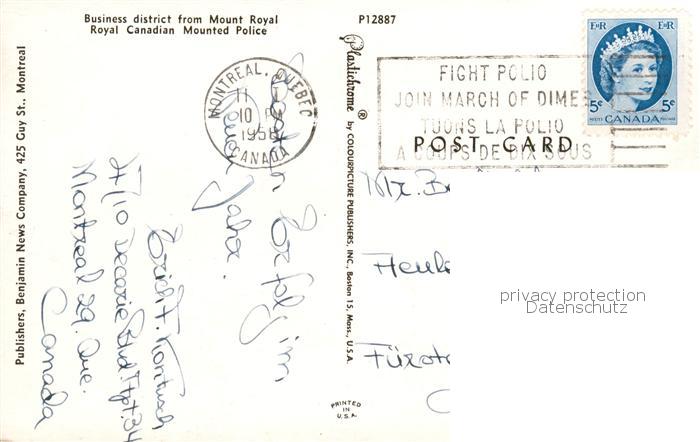 Business district from Mount Royal
Royal Canadian Mounted Police
P12887
Publishers, Benjamin News Company, 425 Guy St., Montreal
Plastichrome ® by COLOURPICTURE PUBLISHERS, INC., Boston 15, Mass., U.S.A.
MONTREAL, QUEBEC
10
1958
CANADA
FIGHT POLIO
JOIN MARCH OF DIMES
TUONS LA POLIO
A COUPS DE DIX SOUS
EIIR EIIR
5c 5c
POSTES CANADA POSTAGE
POST CARD
Erfolg im
Neuen Jahr.
Erich F. Kontusch
4710 Decarie Blvd Apt. 34
Montreal 29. Que.
Canada
Mr. B
Heuk
Fürst
PRINTED
IN
U.S.A.
privacy protection
Datenschutz